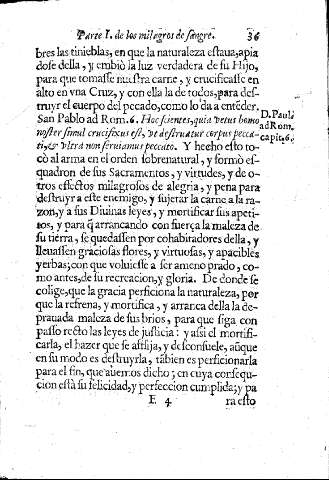 Parte I. de los milagros de sangre. 36
bres las tinieblas, en que la naturaleza estaua, apia
dose della, y embiò la luz verdadera de su Hijo,
para que tomasse nuestra carne, y crucificasse en
alto en vna Cruz, y con ella la de todos, para des-
truyr el cuerpo del pecado, como lo da a entẽder.
San Pablo ad Rom. 6. Hoc scientes, quia vetus homo
noster simul crucifixus est, vt destruatur corpus pecca-
ti, & vltra non seruiamus peccato. Y hecho esto to-
cò al arma en el orden sobrenatural, y formò es-
quadron de sus Sacramentos, y virtudes, y de o-
tros efectos milagrosos de alegria, y pena para
destruyr a este enemigo, y sujetar la carne a la ra-
zon, y a sus Diuinas leyes, y mortificar sus apeti-
tos, y para q̃ arrancando con fuerça la maleza de
su tierra, se quedassen por cohabitadores della, y
lleuassen graciosas flores, y virtuosas, y apacibles
yerbas; con que voluiesse a ser ameno prado, co-
mo antes, de su recreacion, y gloria. De donde se
colige, que la gracia perficiona la naturaleza, por
que la refrena, y mortifica, y arranca della la de-
prauada maleza de sus brios, para que siga con
passo recto las leyes de justicia: y assi el mortifi-
carla, el hazer que se aflija, y desconsuele, aũque
en su modo es destruyrla, tãbien es perficionarla
para el fin, que auemos dicho; en cuya consequ-
cion està su felicidad, y perfeccion cumplida; y pa
E 4 ra esto
D. Paul.
ad Rom.
capit. 6.